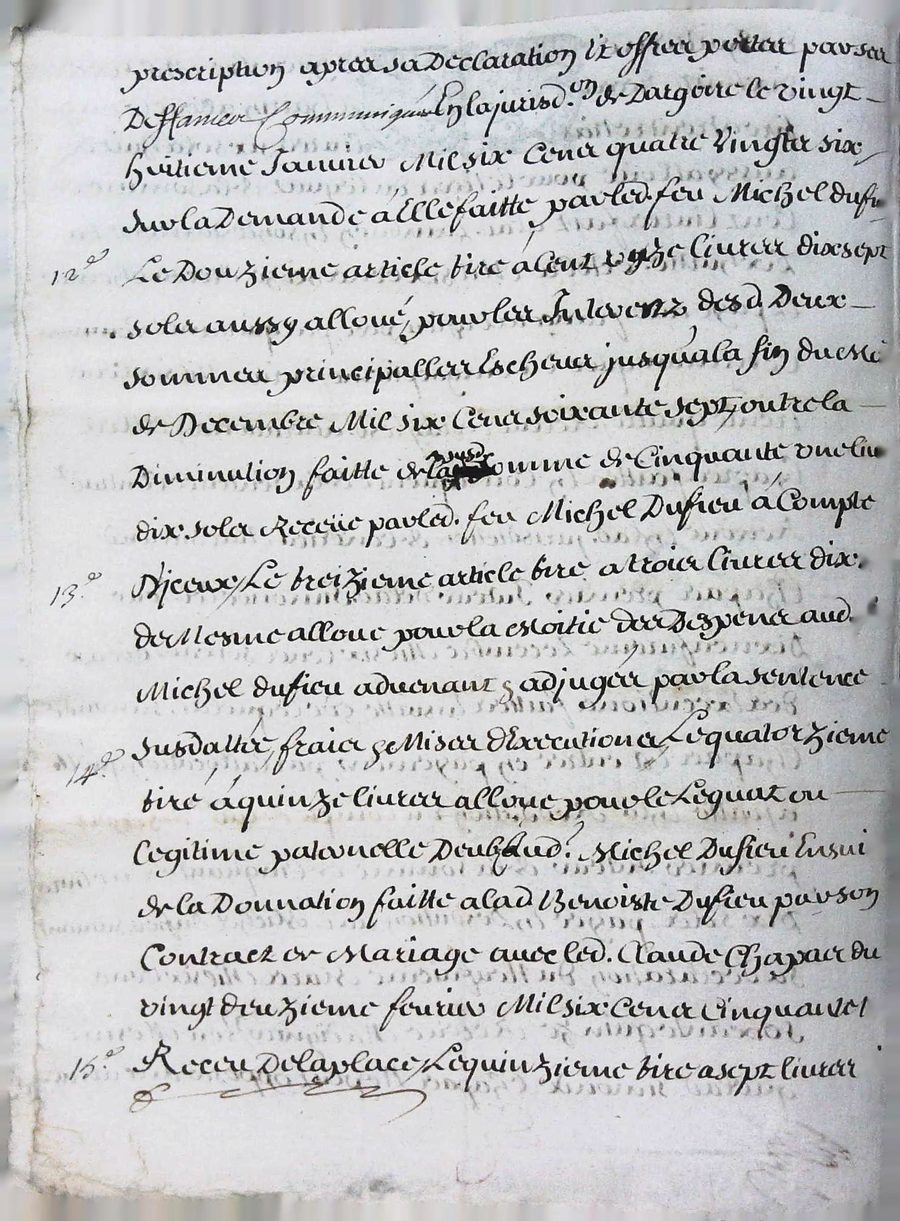 prescription apres sa Declaration Et offres portés par ses
Deffances Communiqués En la jurisd.on de Dargoire le vingt
huitieme Janvier Mil six Cens quatre Vingts six
sur la Demande à Elle faitte par led. feu Michel dufieu
12° Le Douzieme article tiré à Cent onze livres dix sept
sols aussy alloué, pour les Interetz desd. Deux
sommes principalles Escheus jusqu'a la fin du
de Decembre Mil six Cens soixante sept, outre la
Diminution faitte de la susd. somme de Cinquante une
dix sols Receüe par led. feu Michel Dufieu à Compte
13° D'iceux, Le treizieme article tiré a trois livres dix
de Mesme alloué pour la Moitié des Despens aud.
Michel dufieu advenant & adjugés par la sentence
susdattée, frais & Mises d'Execution, Le quatorzieme
14° tiré à quinze livres alloué pour le Legat ou
Legitime paternelle Deub aud. Michel Dufieu Ensui
de la Donnation faitte a lad. Benoiste Dufieu par son
Contract de Mariage avec led. Claude Chapas du
vingt deuzieme fevrier Mil six Cens Cinquante
15° Receu Delaplace, Le quinzieme tiré a sept livres